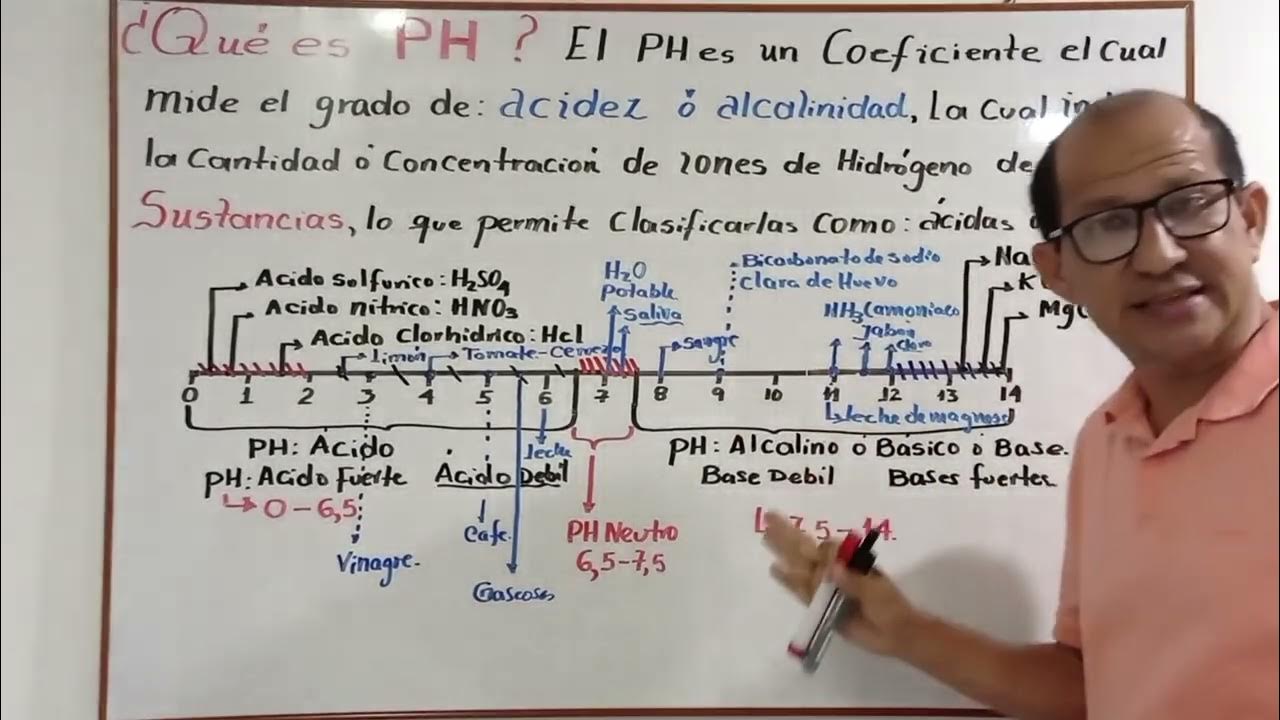 ¿Qué es PH? El PH es un Coeficiente el Cual
mide el grado de: acidez ó alcalinidad, La Cual
la Cantidad ó Concentración de iones de Hidrógeno
Sustancias, lo que permite Clasificarlas Como: ácidas
Acido Solfurico: H₂SO₄
Acido nitrico: HNO₃
Acido Clorhidrico: Hcl
limón
Tomate-Cerveza
H₂O
Potable
Saliva
Sangre
Bicarbonato de sodio
Clara de Huevo
NH₃(amoniaco
Jabón
Cloro
Na
K
Mg
0 1 2 3 4 5 6 7 8 9 10 11 12 13 14
Leche de magnesia
PH: Ácido
PH: Acido Fuerte
Ácido Debil
0-6,5
Vinagre.
Cafe.
Gaseosas
leche
PH Neutro
6,5-7,5
PH: Alcalino ó Básico ó Base.
Base Debil
Bases fuertes
7,5-14.